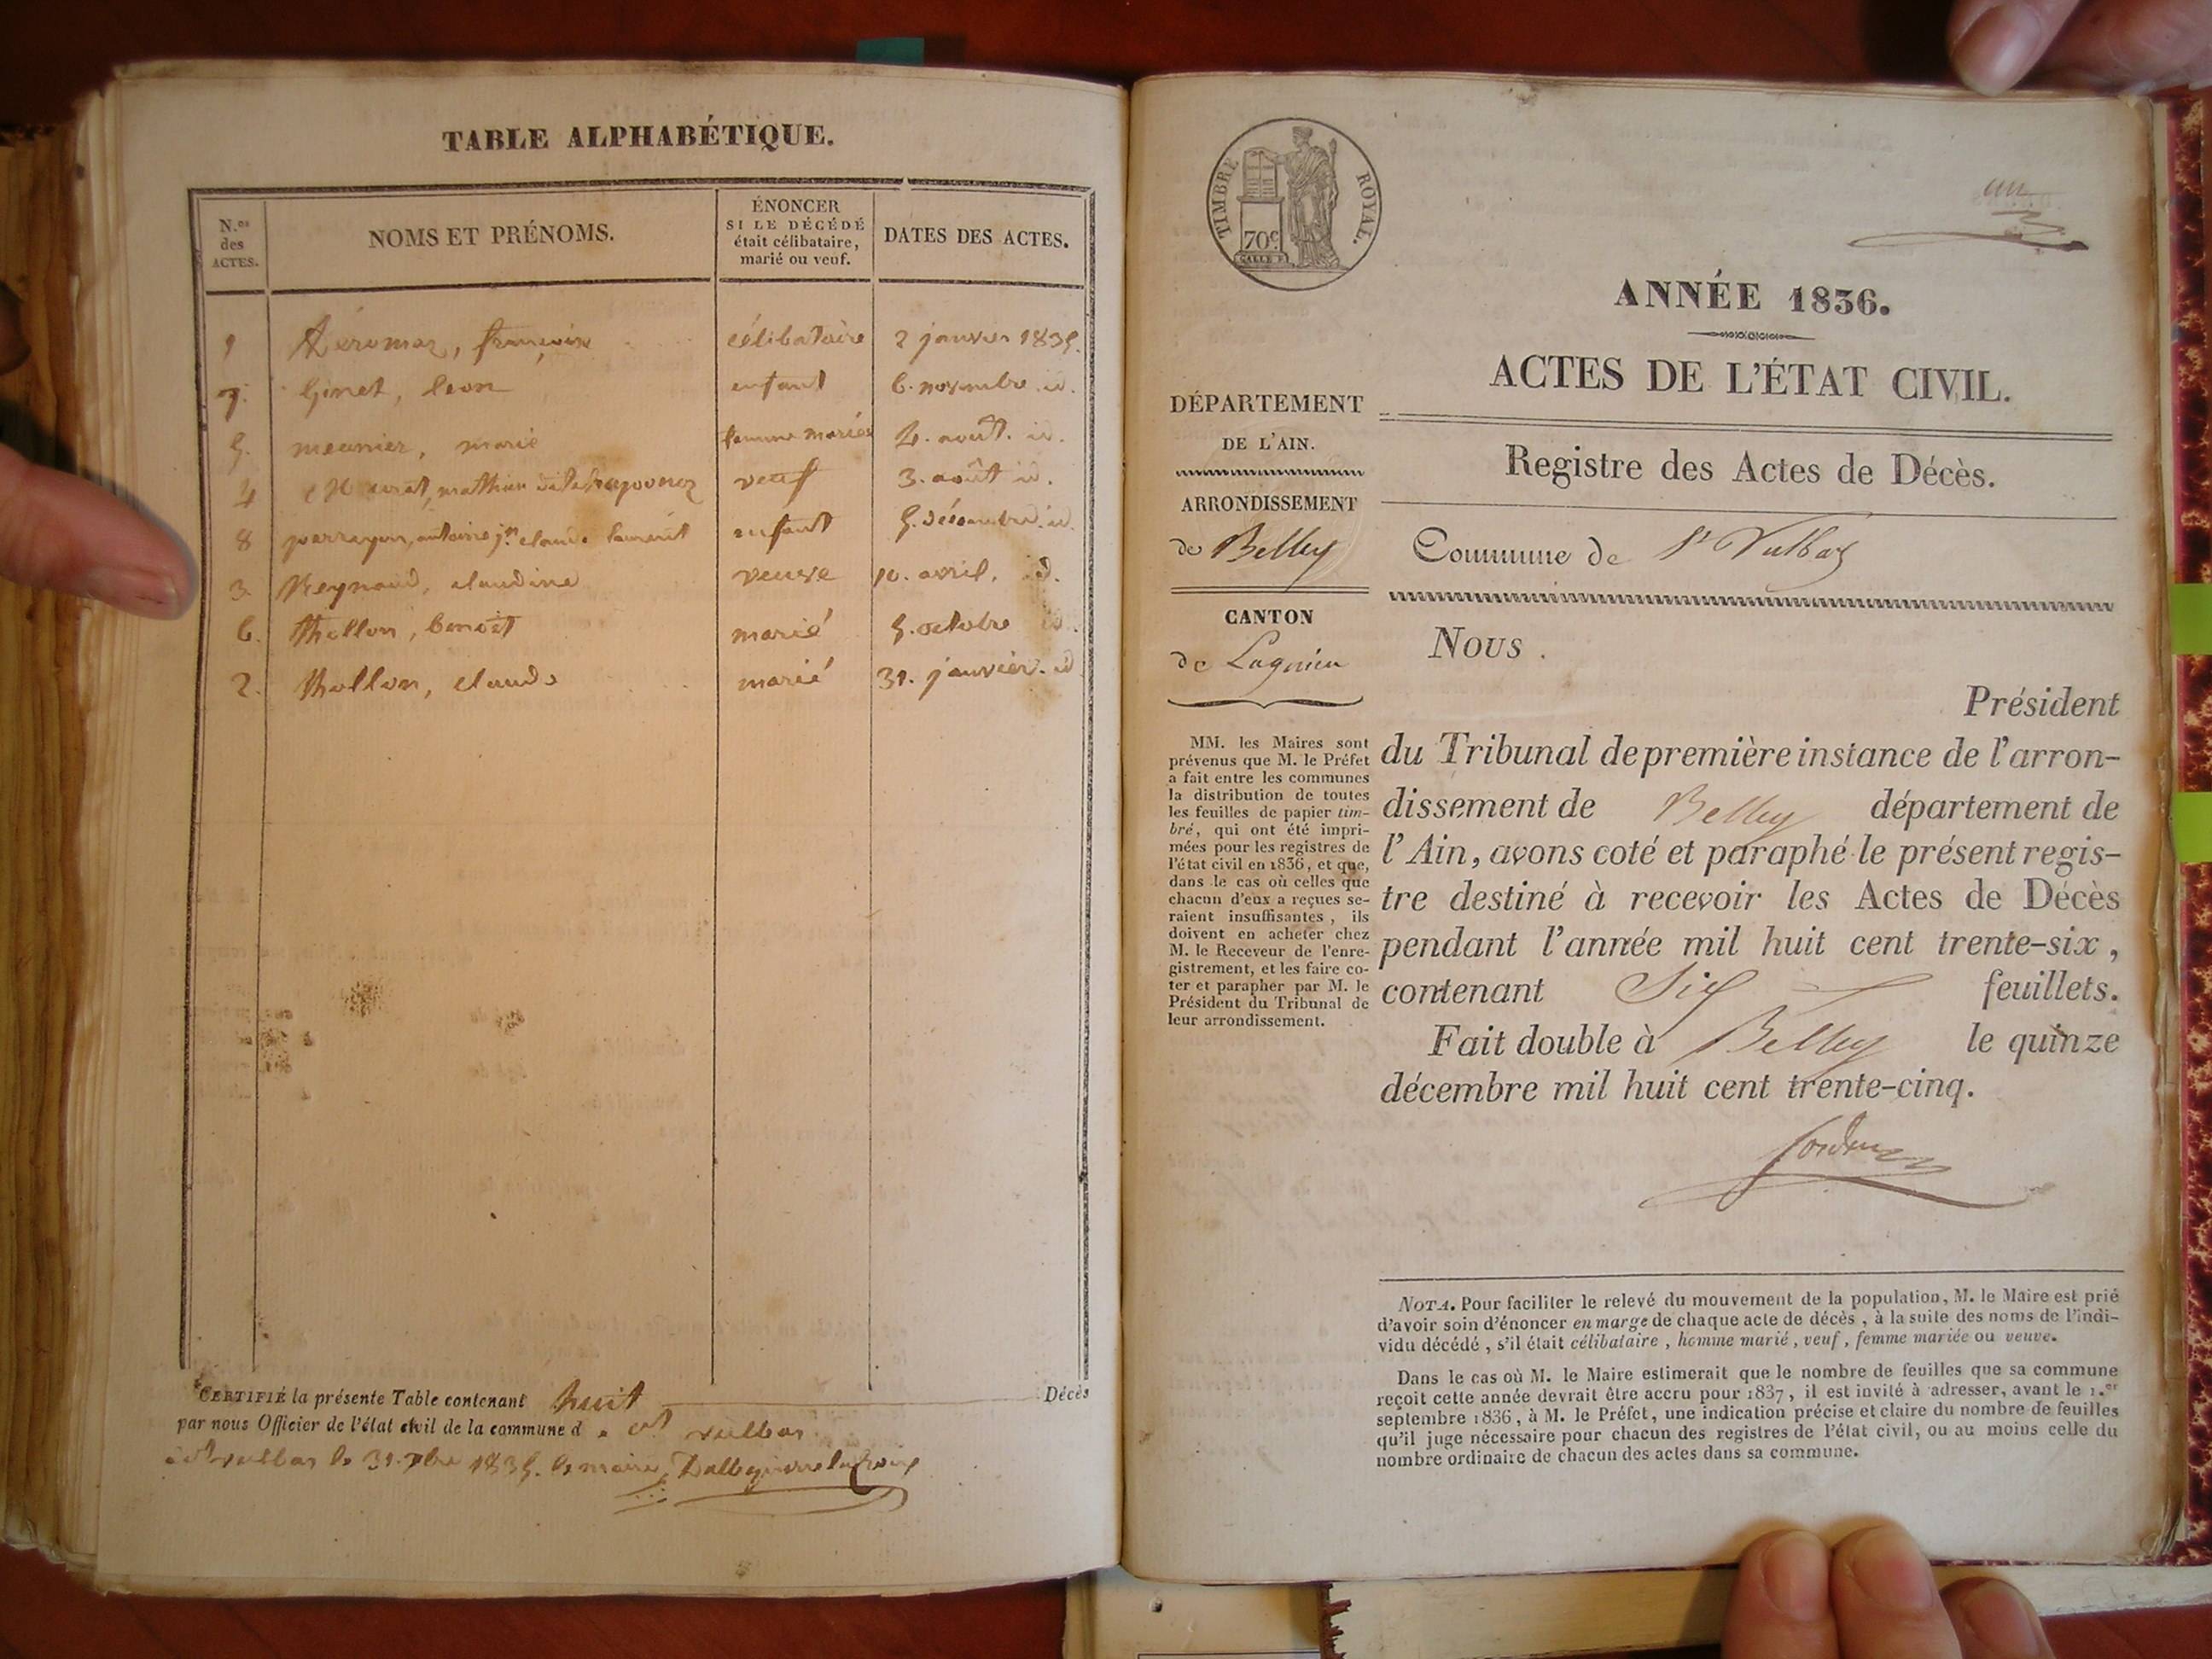 TABLE ALPHABÉTIQUE.
N.os des ACTES.
NOMS ET PRÉNOMS.
ÉNONCER
SI LE DÉCÉDÉ
était célibataire,
marié ou veuf.
DATES DES ACTES.
1 célibataire 2 janvier 1835.
7. Ginet, leon enfant 6. novembre id.
5. meunier, marie femme mariée 4. août. id.
4 mathieu veuf 3. août id.
8 antoine jn claude laurent enfant 5. décembre. id.
3. Reynaud, claudine veuve 10. avril. id.
6. thollon, benoît marié 5. octobre id.
2. thollon, claude marié 31. janvier. id
CERTIFIÉ la présente Table contenant huit Décès
par nous Officier de l'état civil de la commune d e st vulbas
à St vulbas le 31. Xbre 1835. le maire,
TIMBRE ROYAL.
70c
un
ANNÉE 1836.
ACTES DE L'ÉTAT CIVIL.
DÉPARTEMENT
DE L'AIN.
ARRONDISSEMENT
de Belley
CANTON
de Lagnieu
MM. les Maires sont
prévenus que M. le Préfet
a fait entre les communes
la distribution de toutes
les feuilles de papier tim-
bré, qui ont été impri-
mées pour les registres de
l'état civil en 1836, et que,
dans le cas où celles que
chacun d'eux a reçues se-
raient insuffisantes, ils
doivent en acheter chez
M. le Receveur de l'enre-
gistrement, et les faire co-
ter et parapher par M. le
Président du Tribunal de
leur arrondissement.
Registre des Actes de Décès.
Commune de St Vulbas
Nous .
Président
du Tribunal de première instance de l'arron-
dissement de Belley département de
l'Ain, avons coté et paraphé le présent regis-
tre destiné à recevoir les Actes de Décès
pendant l'année mil huit cent trente-six,
contenant Six feuillets.
Fait double à Belley le quinze
décembre mil huit cent trente-cinq.
NOTA. Pour faciliter le relevé du mouvement de la population, M. le Maire est prié
d'avoir soin d'énoncer en marge de chaque acte de décès, à la suite des noms de l'indi-
vidu décédé, s'il était célibataire, homme marié, veuf, femme mariée ou veuve.
Dans le cas où M. le Maire estimerait que le nombre de feuilles que sa commune
reçoit cette année devrait être accru pour 1837, il est invité à adresser, avant le 1.er
septembre 1836, à M. le Préfet, une indication précise et claire du nombre de feuilles
qu'il juge nécessaire pour chacun des registres de l'état civil, ou au moins celle du
nombre ordinaire de chacun des actes dans sa commune.